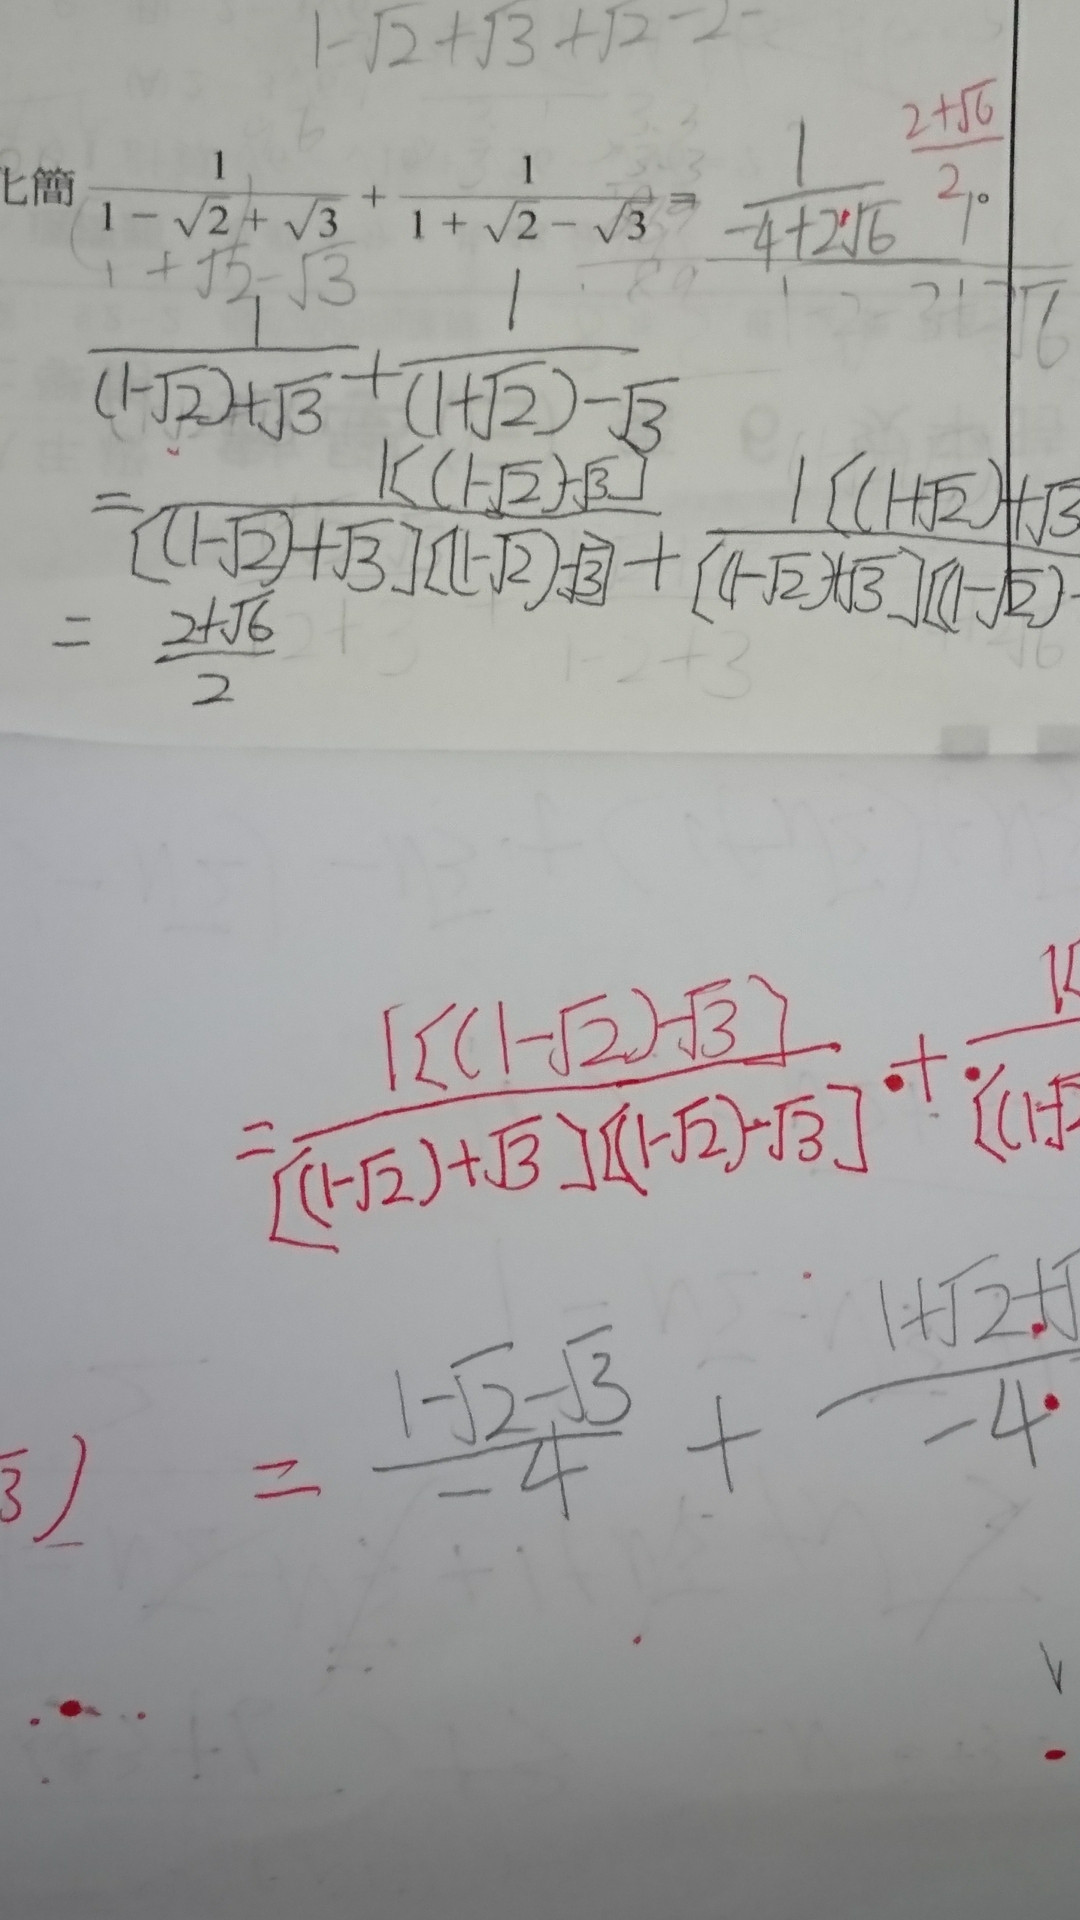 1-√2+√3+√2-2-
化簡 1/(1-√2+√3) + 1/(1+√2-√3) = 1/(-4+2√6) (2+√6)/2 。
1+√2-√3
1/((1-√2)+√3) + 1/((1+√2)-√3)
= 1[(1-√2)-√3]/[(1-√2)+√3][(1-√2)-√3] + 1[(1+√2)+√3/[(1-√2)+√3][(1-√2)-
= (2+√6)/2
= 1[(1-√2)-√3]/[(1-√2)+√3][(1-√2)-√3] + 1[/[(1-√2
3] = (1-√2-√3)/-4 + (1+√2+√/-4